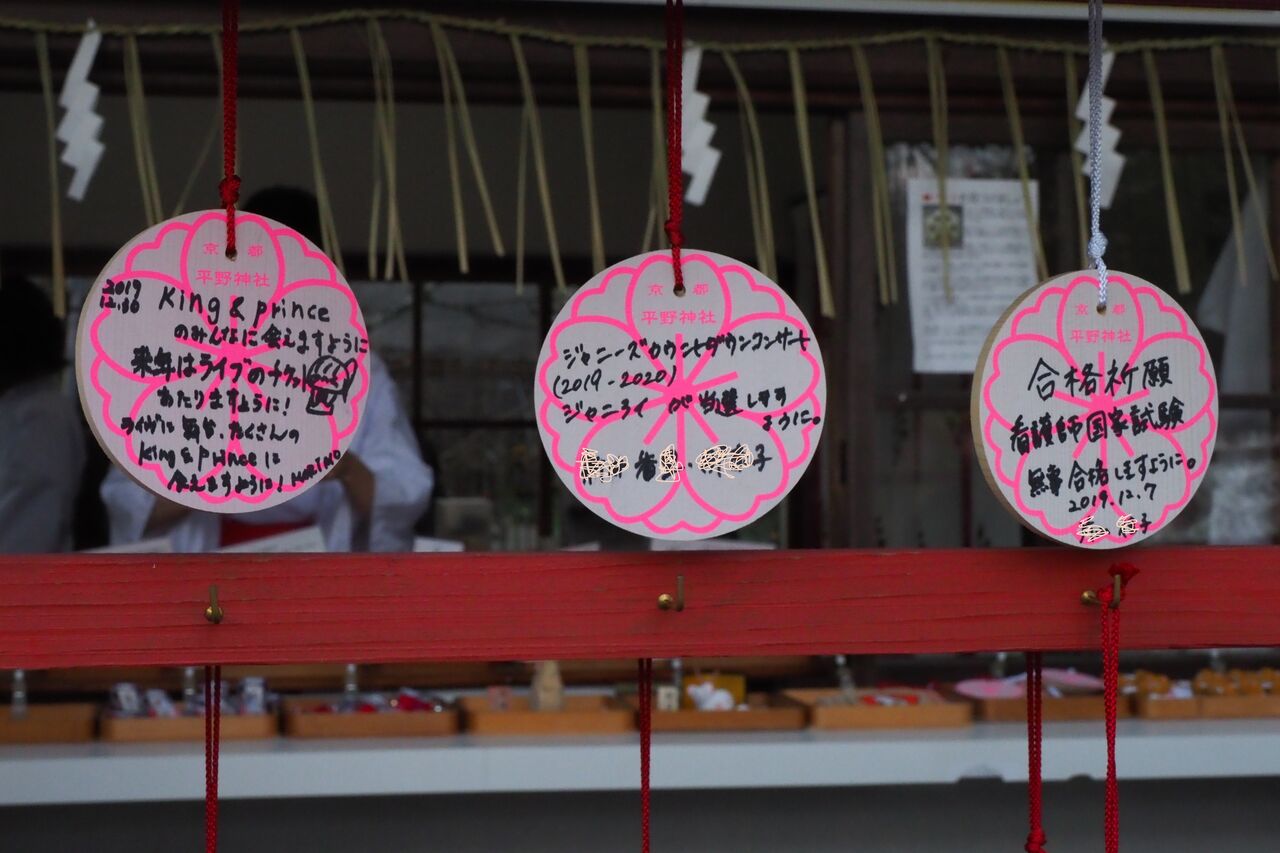 京都
平野神社
2019
12.06
King & prince
のみんなに会えますように
来年はライブのチケット
あたりますように!
ライブに毎年、たくさんの
King & Princeに
会えますように!
京都
平野神社
ジャニーズカウントダウンコンサート
(2019-2020)
ジャニライ が 当選します
ように。
子
京都
平野神社
合格祈願
看護師国家試験
無事 合格しますように。
2019.12.7
子